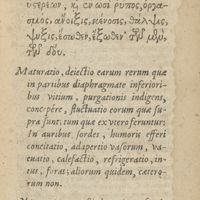 ὑστερέων, κ̀, ἐν ὠσὶ ῥύπος, ὀργα-
σμὸς, ἄνοιξις, κένωσις, θάλψις,
ψύξις, ἔσωθεν, ἔξωθεν
Maturatio, deiectio earum rerum quæ
in partibus diaphragmate inferiori-
bus vitium, purgationis indigens,
concepêre, fluctuatio eorum quæ su-
pra sunt: tum quæ ex utero feruntur:
In auribus sordes, humoris efferi
concitatio, adapertio vasorum, va-
cuatio, calefactio, refrigeratio, in-
tus, foras: aliorum quidem, cætero-
rum non.